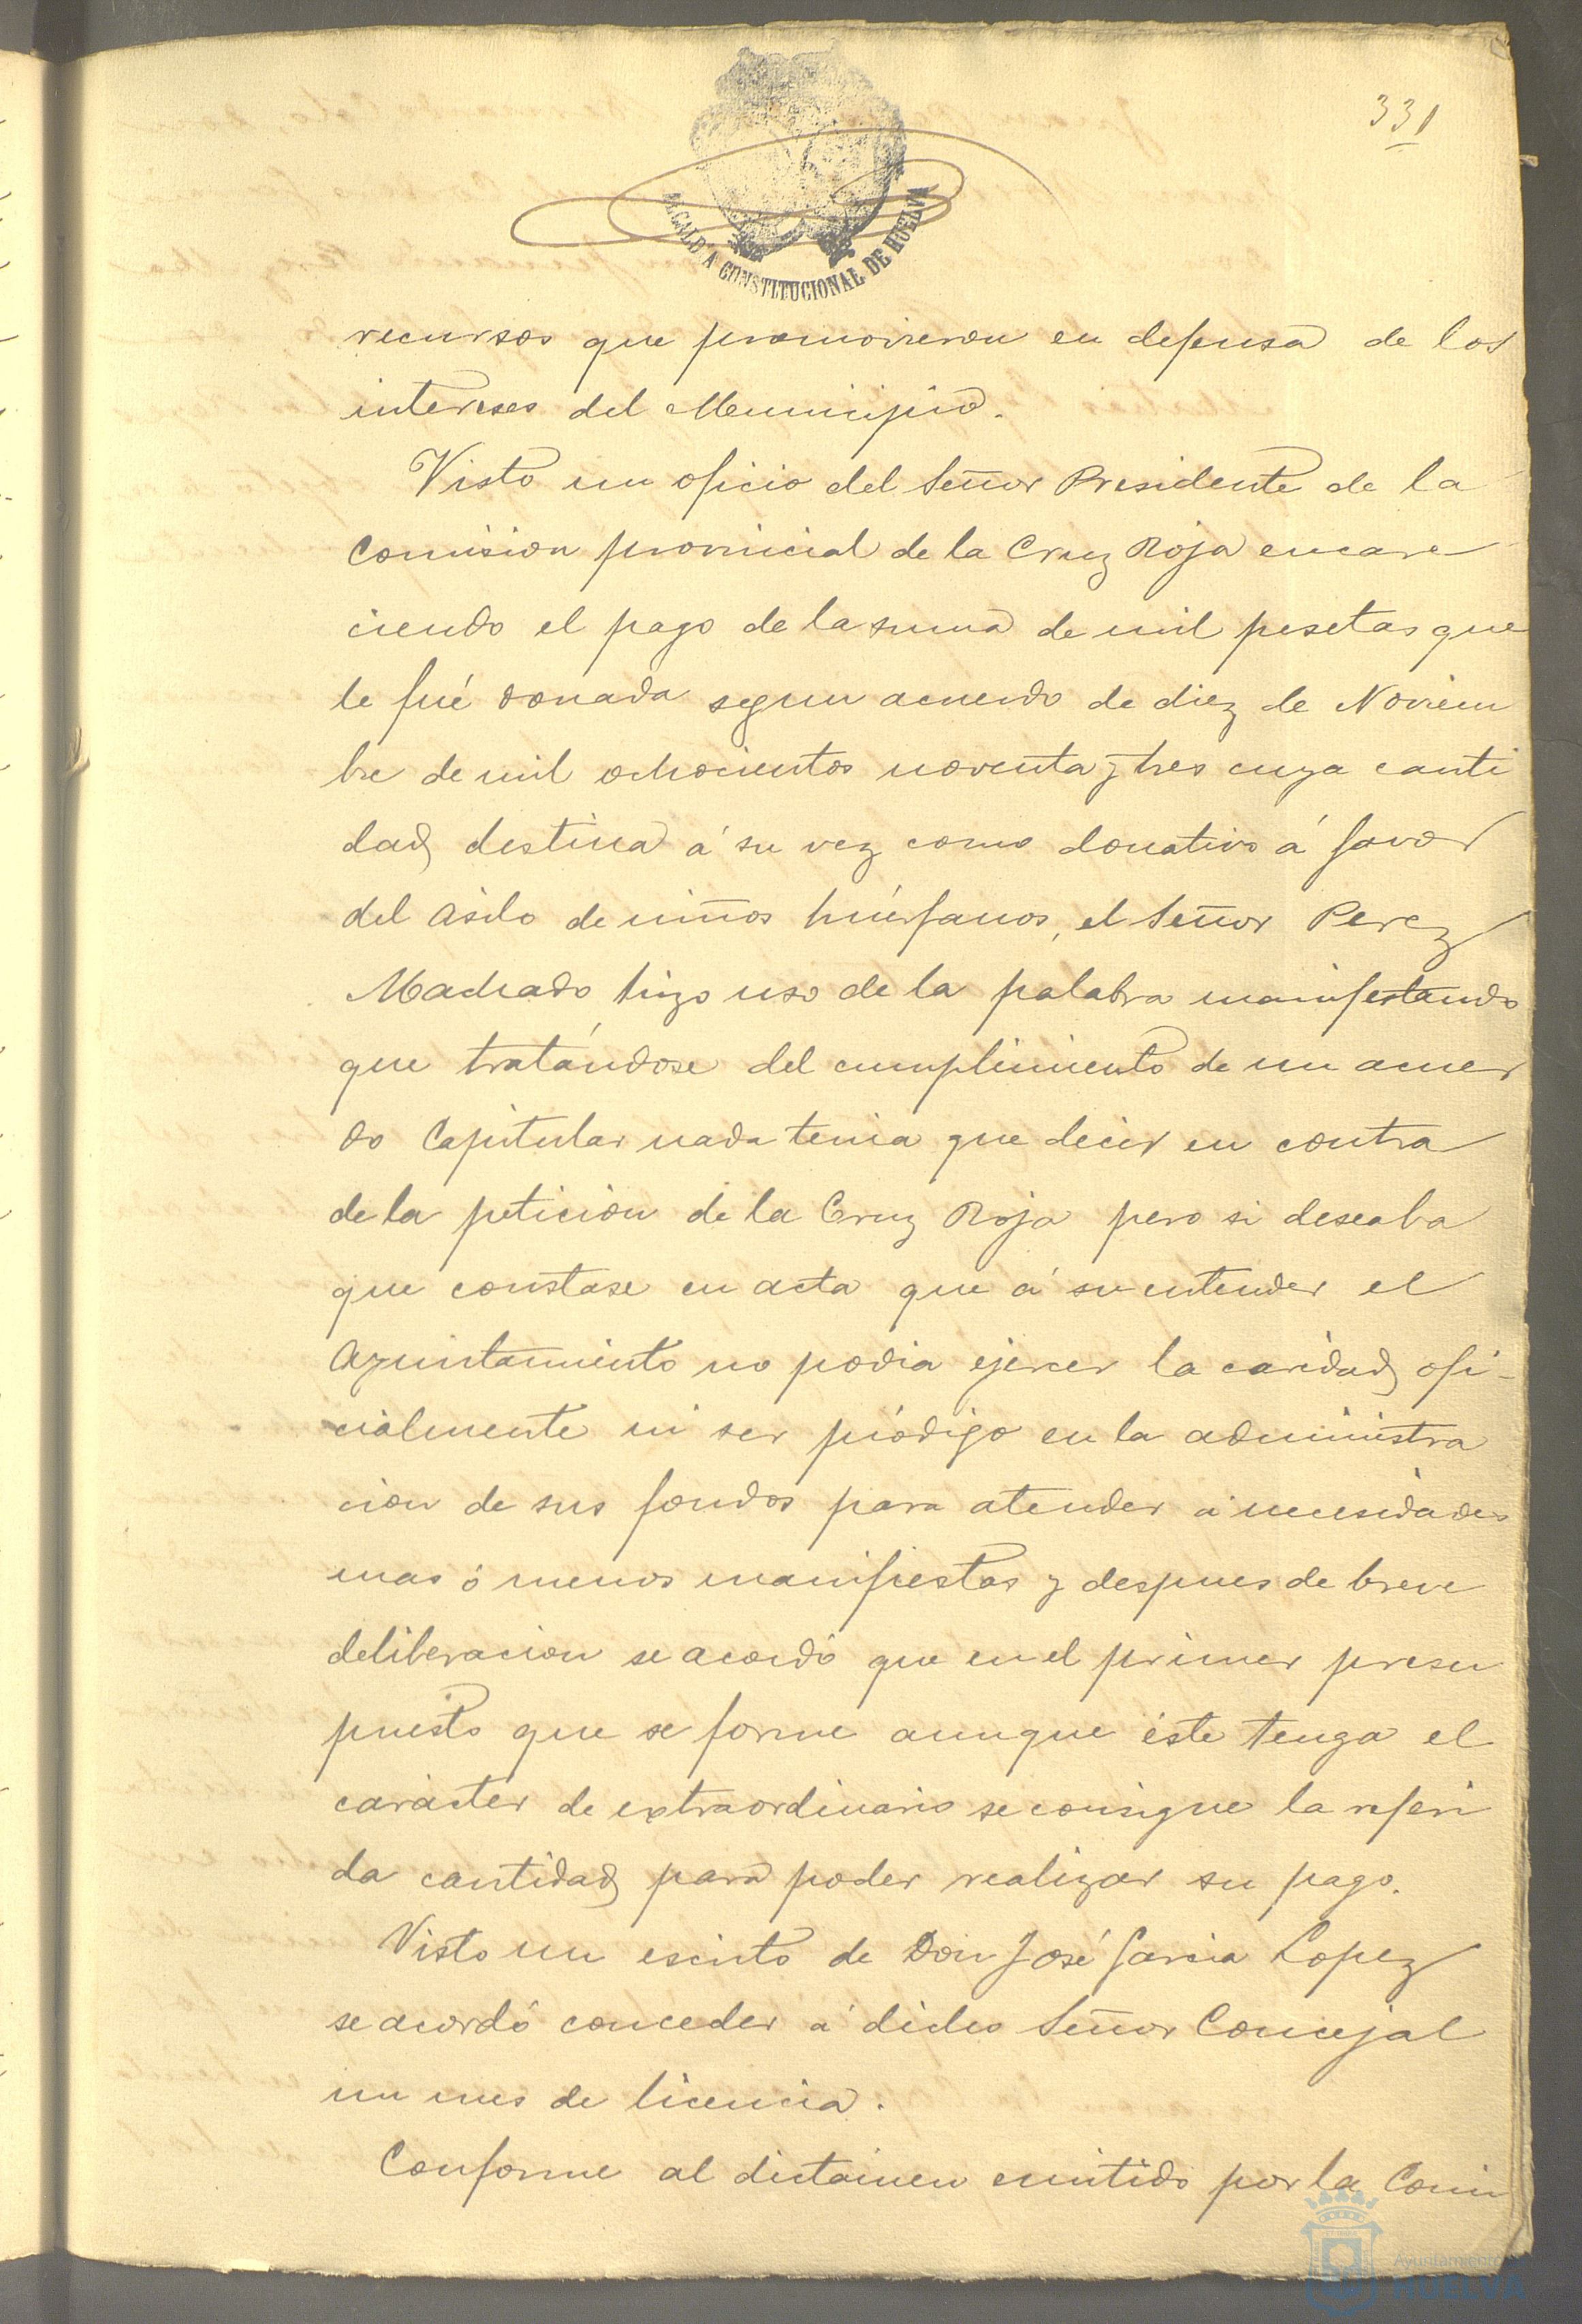 331
ALCALDÍA CONSTITUCIONAL DE HUELVA
recursos que promovieron en defensa de los
intereses del Municipio.
Visto un oficio del Señor Presidente de la
Comision provincial de la Cruz Roja encare
ciendo el pago de la suma de mil pesetas que
le fué donada segun acuerdo de diez de Noviem
bre de mil ochocientos noventa y tres cuya canti
dad destina á su vez como donativo á favor
del Asilo de niños huérfanos, el Señor Perez
Machado hizo uso de la palabra manifestando
que tratándose del cumplimiento de un acuer
do Capitular nada tenia que decir en contra
de la peticion de la Cruz Roja pero si deseaba
que constase en acta que á su entender el
Ayuntamiento no podia ejercer la caridad ofi-
cialmente ni ser pródigo en la administra
cion de sus fondos para atender á necesidades
mas ó menos manifiestas y despues de breve
deliberacion se acordó que en el primer presu
puesto que se forme aunque éste tenga el
carácter de extraordinario se consigne la referi
da cantidad para poder realizar su pago.
Visto un escrito de Don José Garcia Lopez
se acordó conceder á dicho Señor Concejal
un mes de licencia.
Conforme al dictamen emitido por la Comi
Ayuntamiento
HUELVA